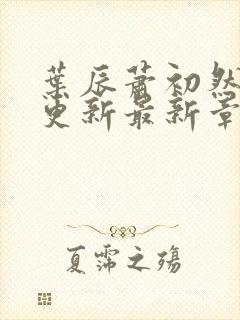 葉辰蕭初然
更新最新章
夏霈之殤